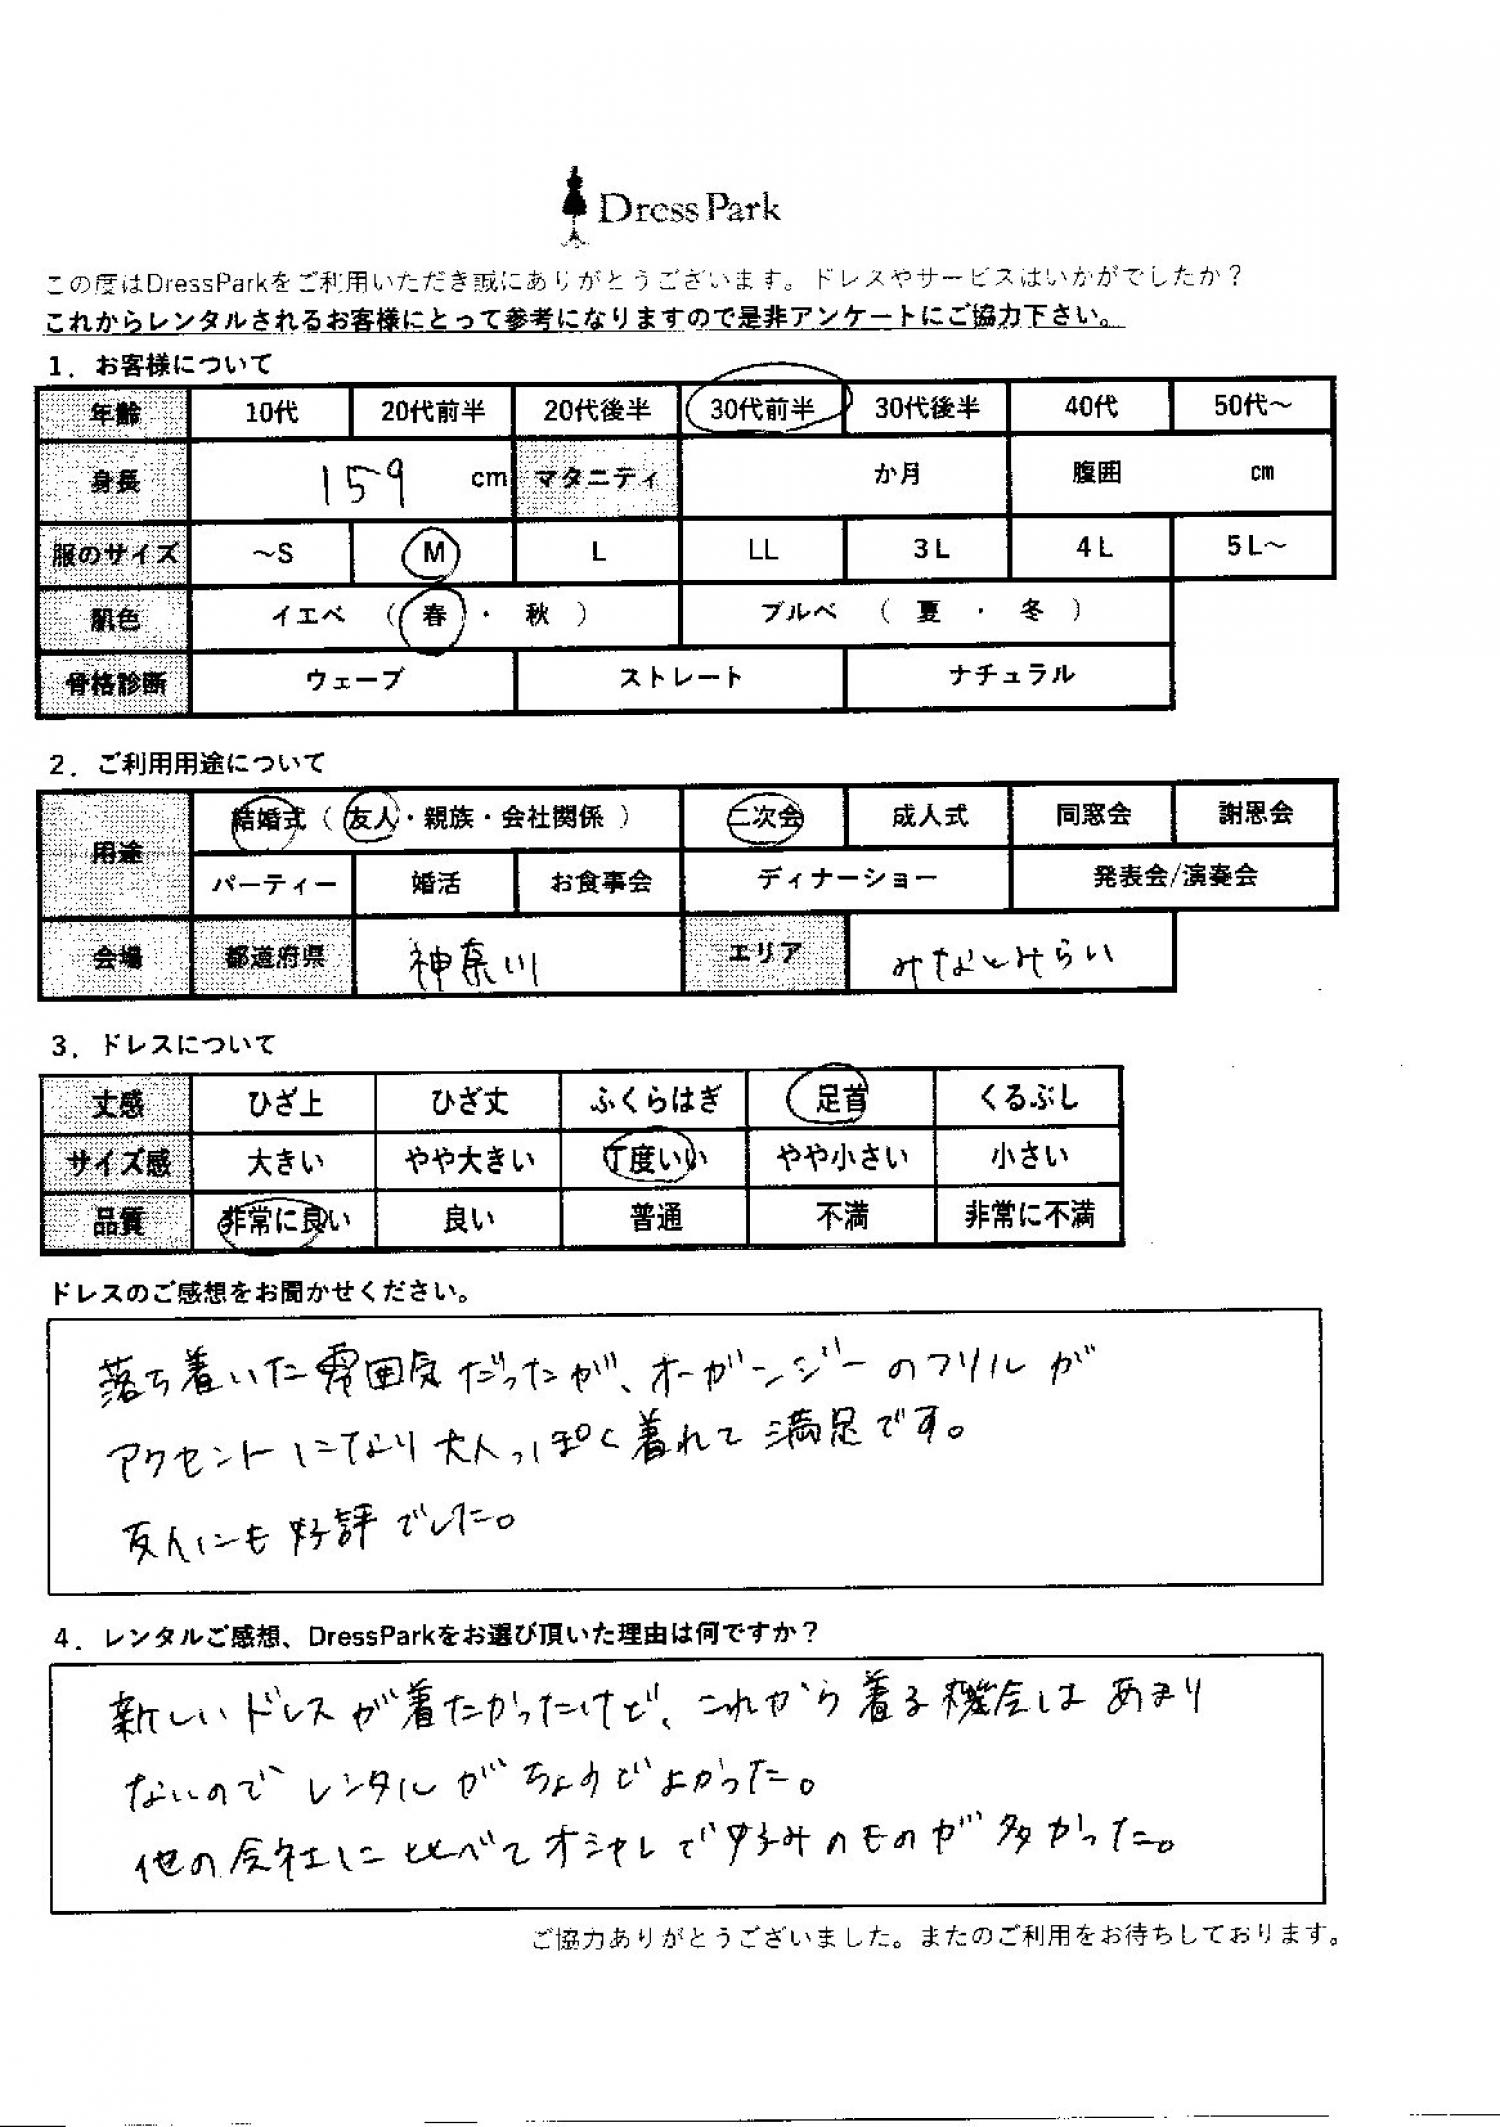 Dress Park
この度はDressParkをご利用いただき誠にありがとうございます。ドレスやサービスはいかがでしたか？
これからレンタルされるお客様にとって参考になりますので是非アンケートにご協力下さい。
1．お客様について
年齢 10代 20代前半 20代後半 30代前半 30代後半 40代 50代～
身長 159 cm マタニティ か月 腹囲 cm
服のサイズ ～S M L LL 3L 4L 5L～
肌色 イエベ （ 春 ・ 秋 ） ブルベ （ 夏 ・ 冬 ）
骨格診断 ウェーブ ストレート ナチュラル
2．ご利用用途について
用途 結婚式（ 友人・親族・会社関係 ） 二次会 成人式 同窓会 謝恩会
パーティー 婚活 お食事会 ディナーショー 発表会/演奏会
会場 都道府県 神奈川 エリア みなとみらい
3．ドレスについて
丈感 ひざ上 ひざ丈 ふくらはぎ 足首 くるぶし
サイズ感 大きい やや大きい 丁度いい やや小さい 小さい
品質 非常に良い 良い 普通 不満 非常に不満
ドレスのご感想をお聞かせください。
落ち着いた雰囲気だったが、オーガンジーのフリルが
アクセントになり大人っぽく着れて満足です。
友人にも好評でした。
4．レンタルご感想、DressParkをお選び頂いた理由は何ですか？
新しいドレスが着たかったけど、これから着る機会はあまり
ないのでレンタルがちょうどよかった。
他の会社に比べてオシャレで好みのものが多かった。
ご協力ありがとうございました。またのご利用をお待ちしております。